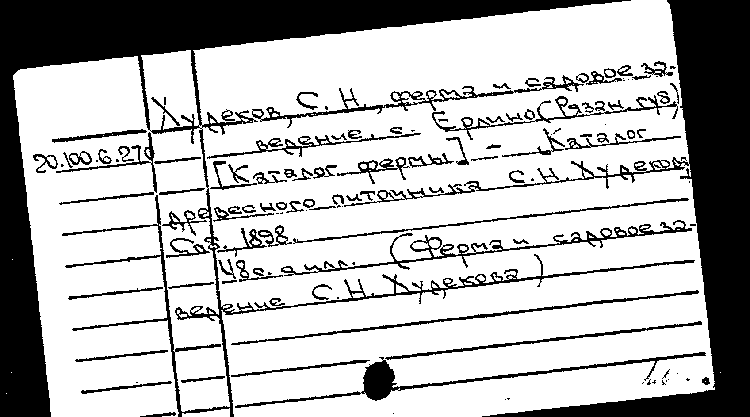 Худеков, С. Н., ферма и садовое за-
ведение, с. Ерлино (Рязан. губ)
20.100.6.270
[Каталог фермы] - Каталог
древесного питомника С.Н. Худекова
Спб., 1898.
48с. с илл. (Ферма и садовое за-
ведение С.Н. Худекова)